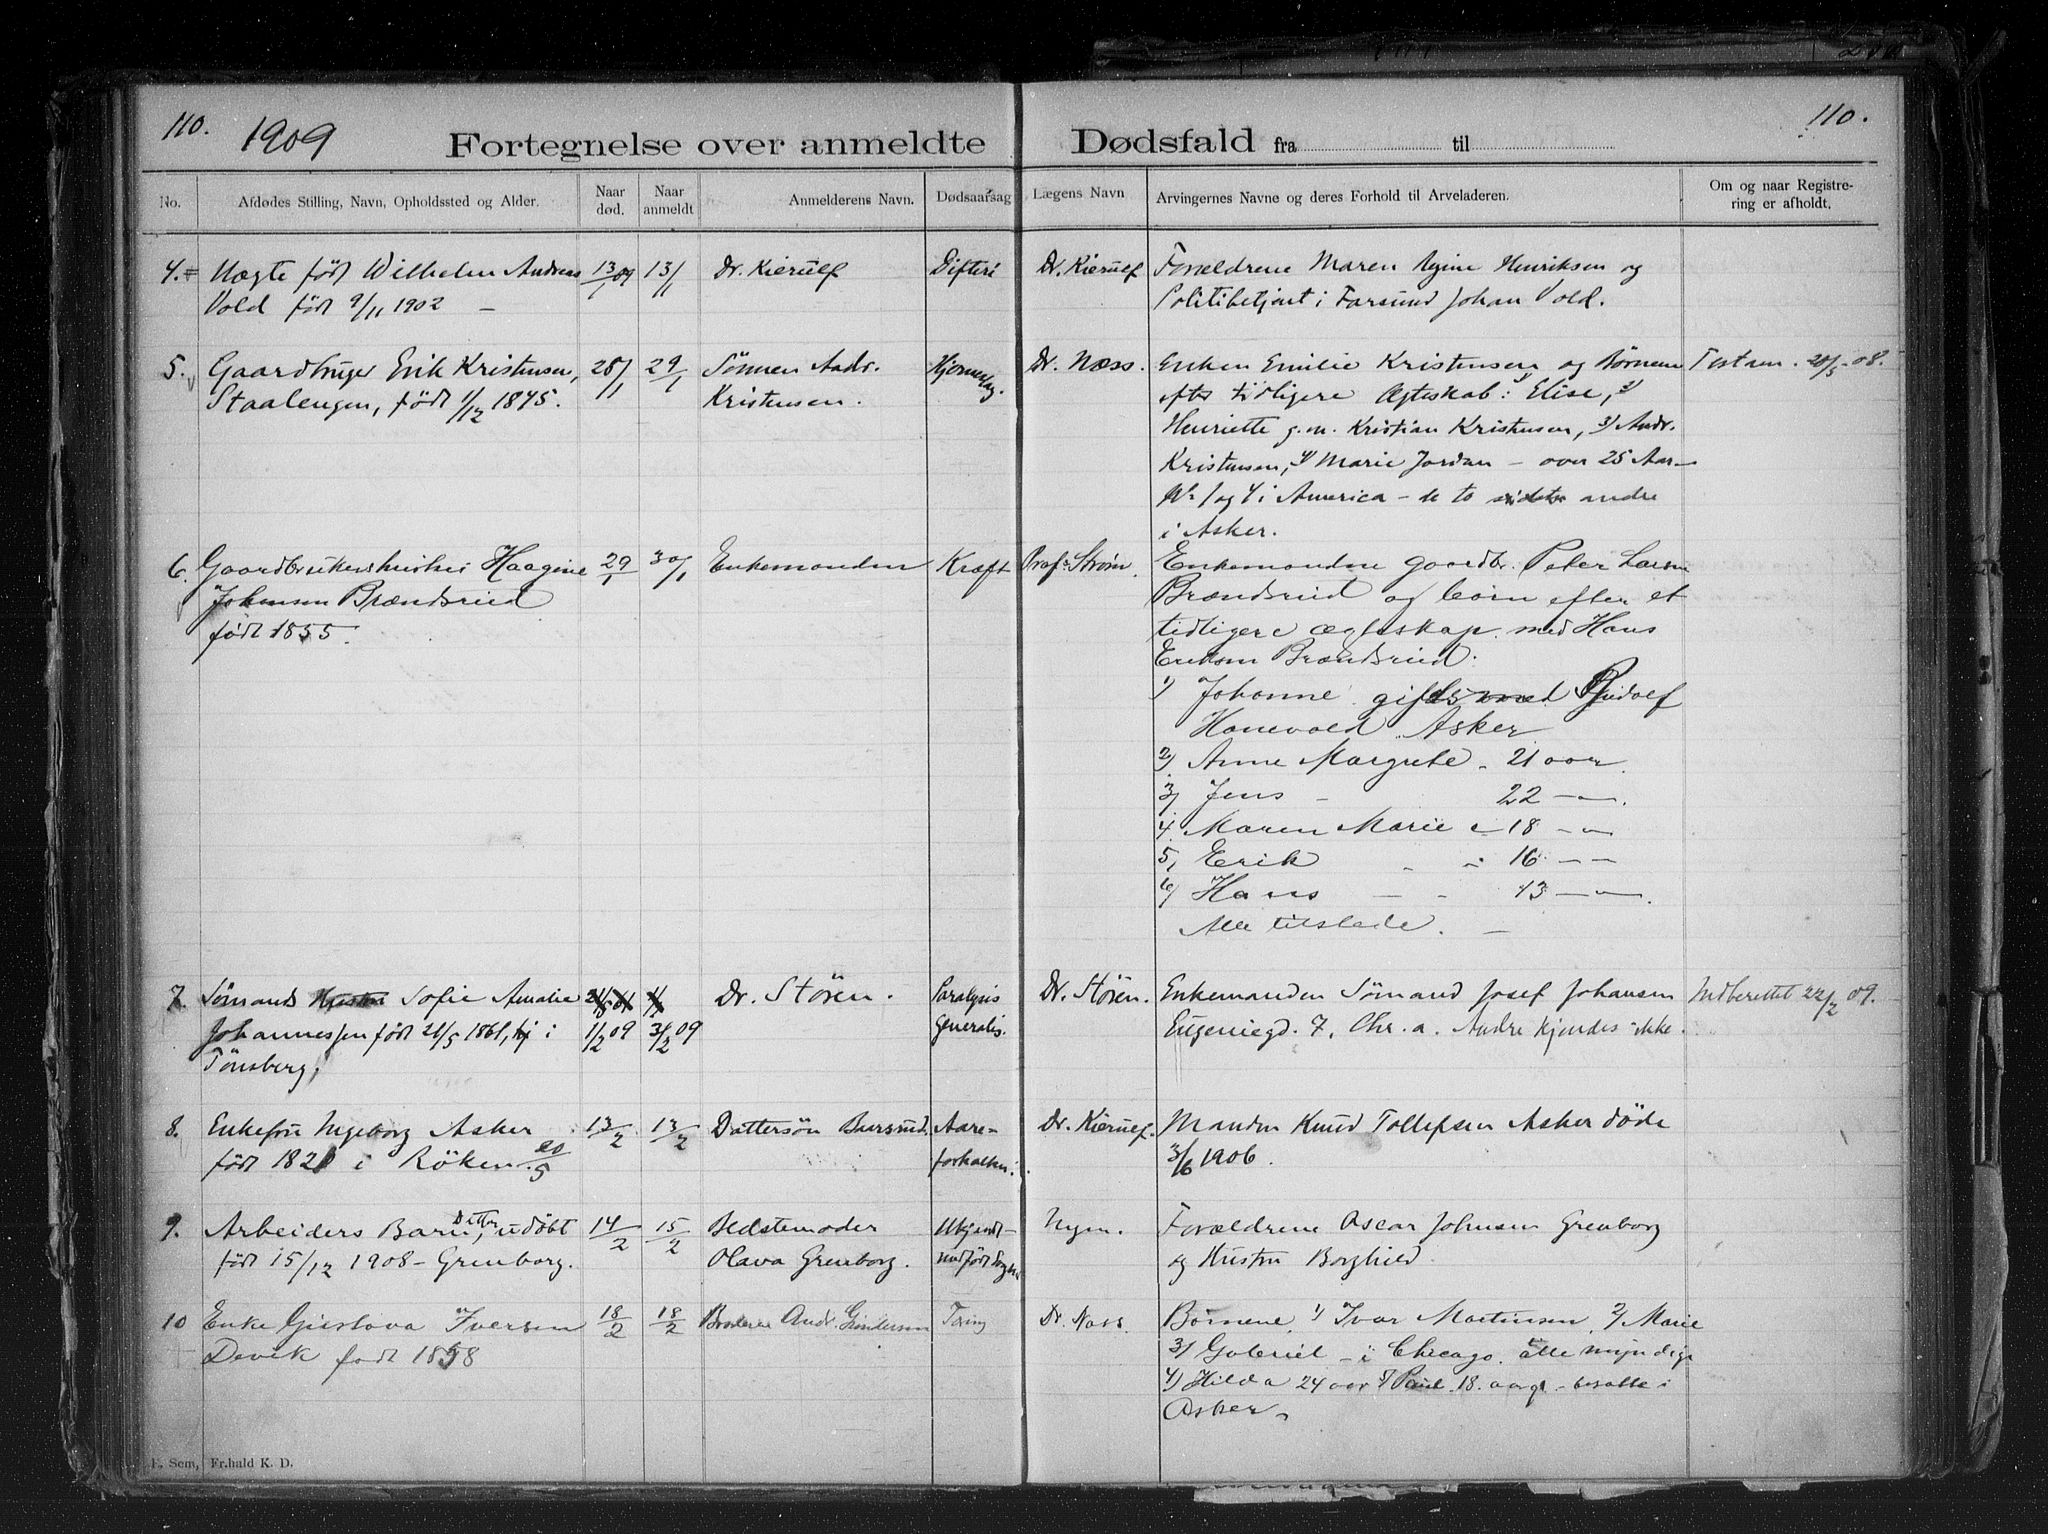 110.
1909
Fortegnelse over anmeldte Dødsfald fra til
110.
No.
Afdødes Stilling, Navn, Opholdssted og Alder.
Naar død.
Naar anmeldt
Anmelderens Navn.
Dødsaarsag
Lægens Navn
Arvingernes Navne og deres Forhold til Arveladeren.
Om og naar Registre-
ring er afholdt.
4. Uægte født Wilhelm Andreas 13/1 09 13/1 Dr. Kierulf Difteri Dr. Kierulf Forældrene Maren Regine Henriksen og
Vold født 9/11 1902 — Politibetjent i Farsund Johan Vold.
5. Gaardbruger Erik Kristensen, 28/1 29/1 Sönnen Andr. Hjerneslag. Dr. Næss. Enken Emilie Kristensen og Börnene Testam. 20/5-08.
Staalengen, født 1/12 1845. Kristensen. efter tidligere Ægteskab: 1) Elise, 2)
Henriette g.m. Kristian Kristensen, 3) Andr.
Kristensen, 4) Marie Jordan — over 25 Aar —
Nr 1 og 4 i America — de to andre
i Asker.
6. Gaardbrukerhustru Haagine 29/1 30/1 Enkemanden Kræft Prof. Strøm. Enkemanden gaardbr. Peter Larsen
Johnsen Brændsrud Brændsrud og börn efter et
født 1855. tidligere ægteskap med Hans
Eriksen Brændsrud:
1) Johanne gift med Rudolf
Hanevold Asker
2) Anne Margrete - 21 aar.
3) Jens - 22 — " —.
4. Maren Marie - 18 — " —
5, Erik - 16 — —
6) Hans - - 13 — " —.
Alle tilstede. —
7. Sømands Hustru Sofie Amalie Dr. Stören. Paralysis Dr. Stören. Enkemanden Sömand Josef Johansen Indberettet 22/2 09.
Johannessen født 21/5 1861, i 1/2 09 3/2 09 Generalis. Eugeniegd. 7, Chr.a. Andre kjendes ikke.
Tönsberg.
8. Enkefru Ingeborg Asker 13/2 13/2 Dattersön Aare- Dr. Kierulf. Manden Knud Tollefsen Asker döde
født 1821 i Röken 20/5 forkalkn. 3/6 1906.
9. Arbeiders Barn, Datter, udöbt 14/2 15/2 Bedstemoder Ukjendt — Ingen. Forældrene Oscar Johnsen Grenborg
født 15/12 1908 — Grenborg. Olava Grenborg. medfödt og Hustru Borghild.
10 Enke Gustava Iversen 18/2 18/2 Broderen Andr. Gundersen Tæring Dr. Næss. Börnene 1) Ivar Martinsen, 2) Marie
Devik født 1858 3) Gabriel — i Chicago. alle myndige
4) Hilda 24 aar 5) Paul 18. aar — bosatte i
Asker.
F. Sem, Fr.hald K. D.